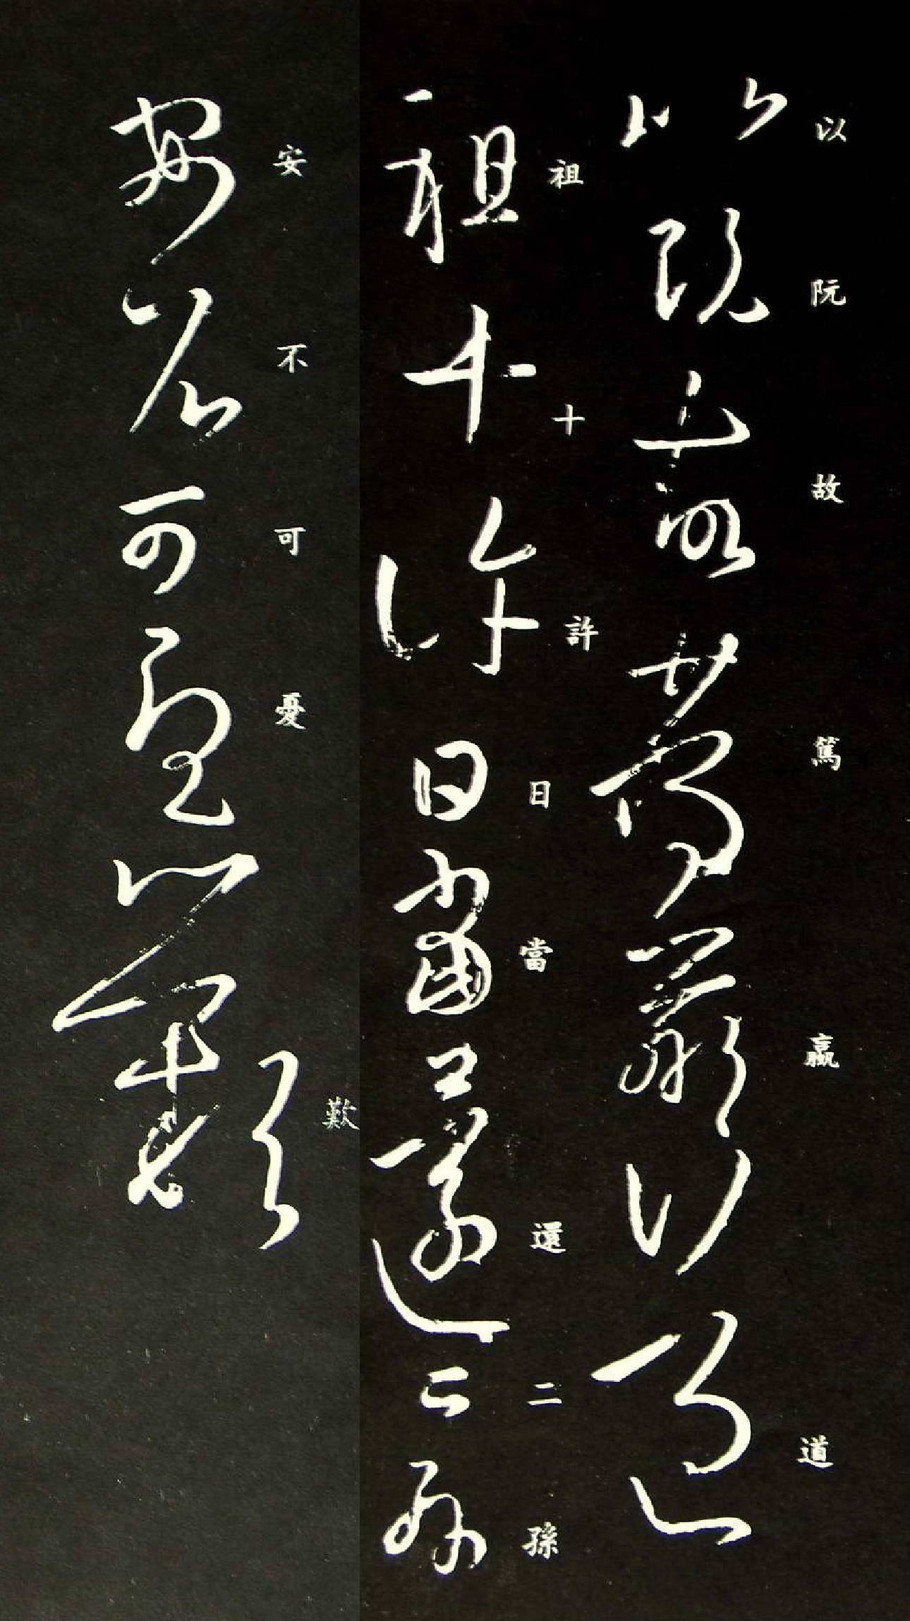 以阮故篤羸道
祖十許日當還二孫
安不可憂歎